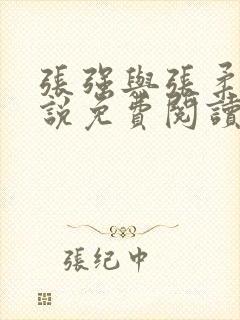 張強與張柔
說免費閱讀
張纪中